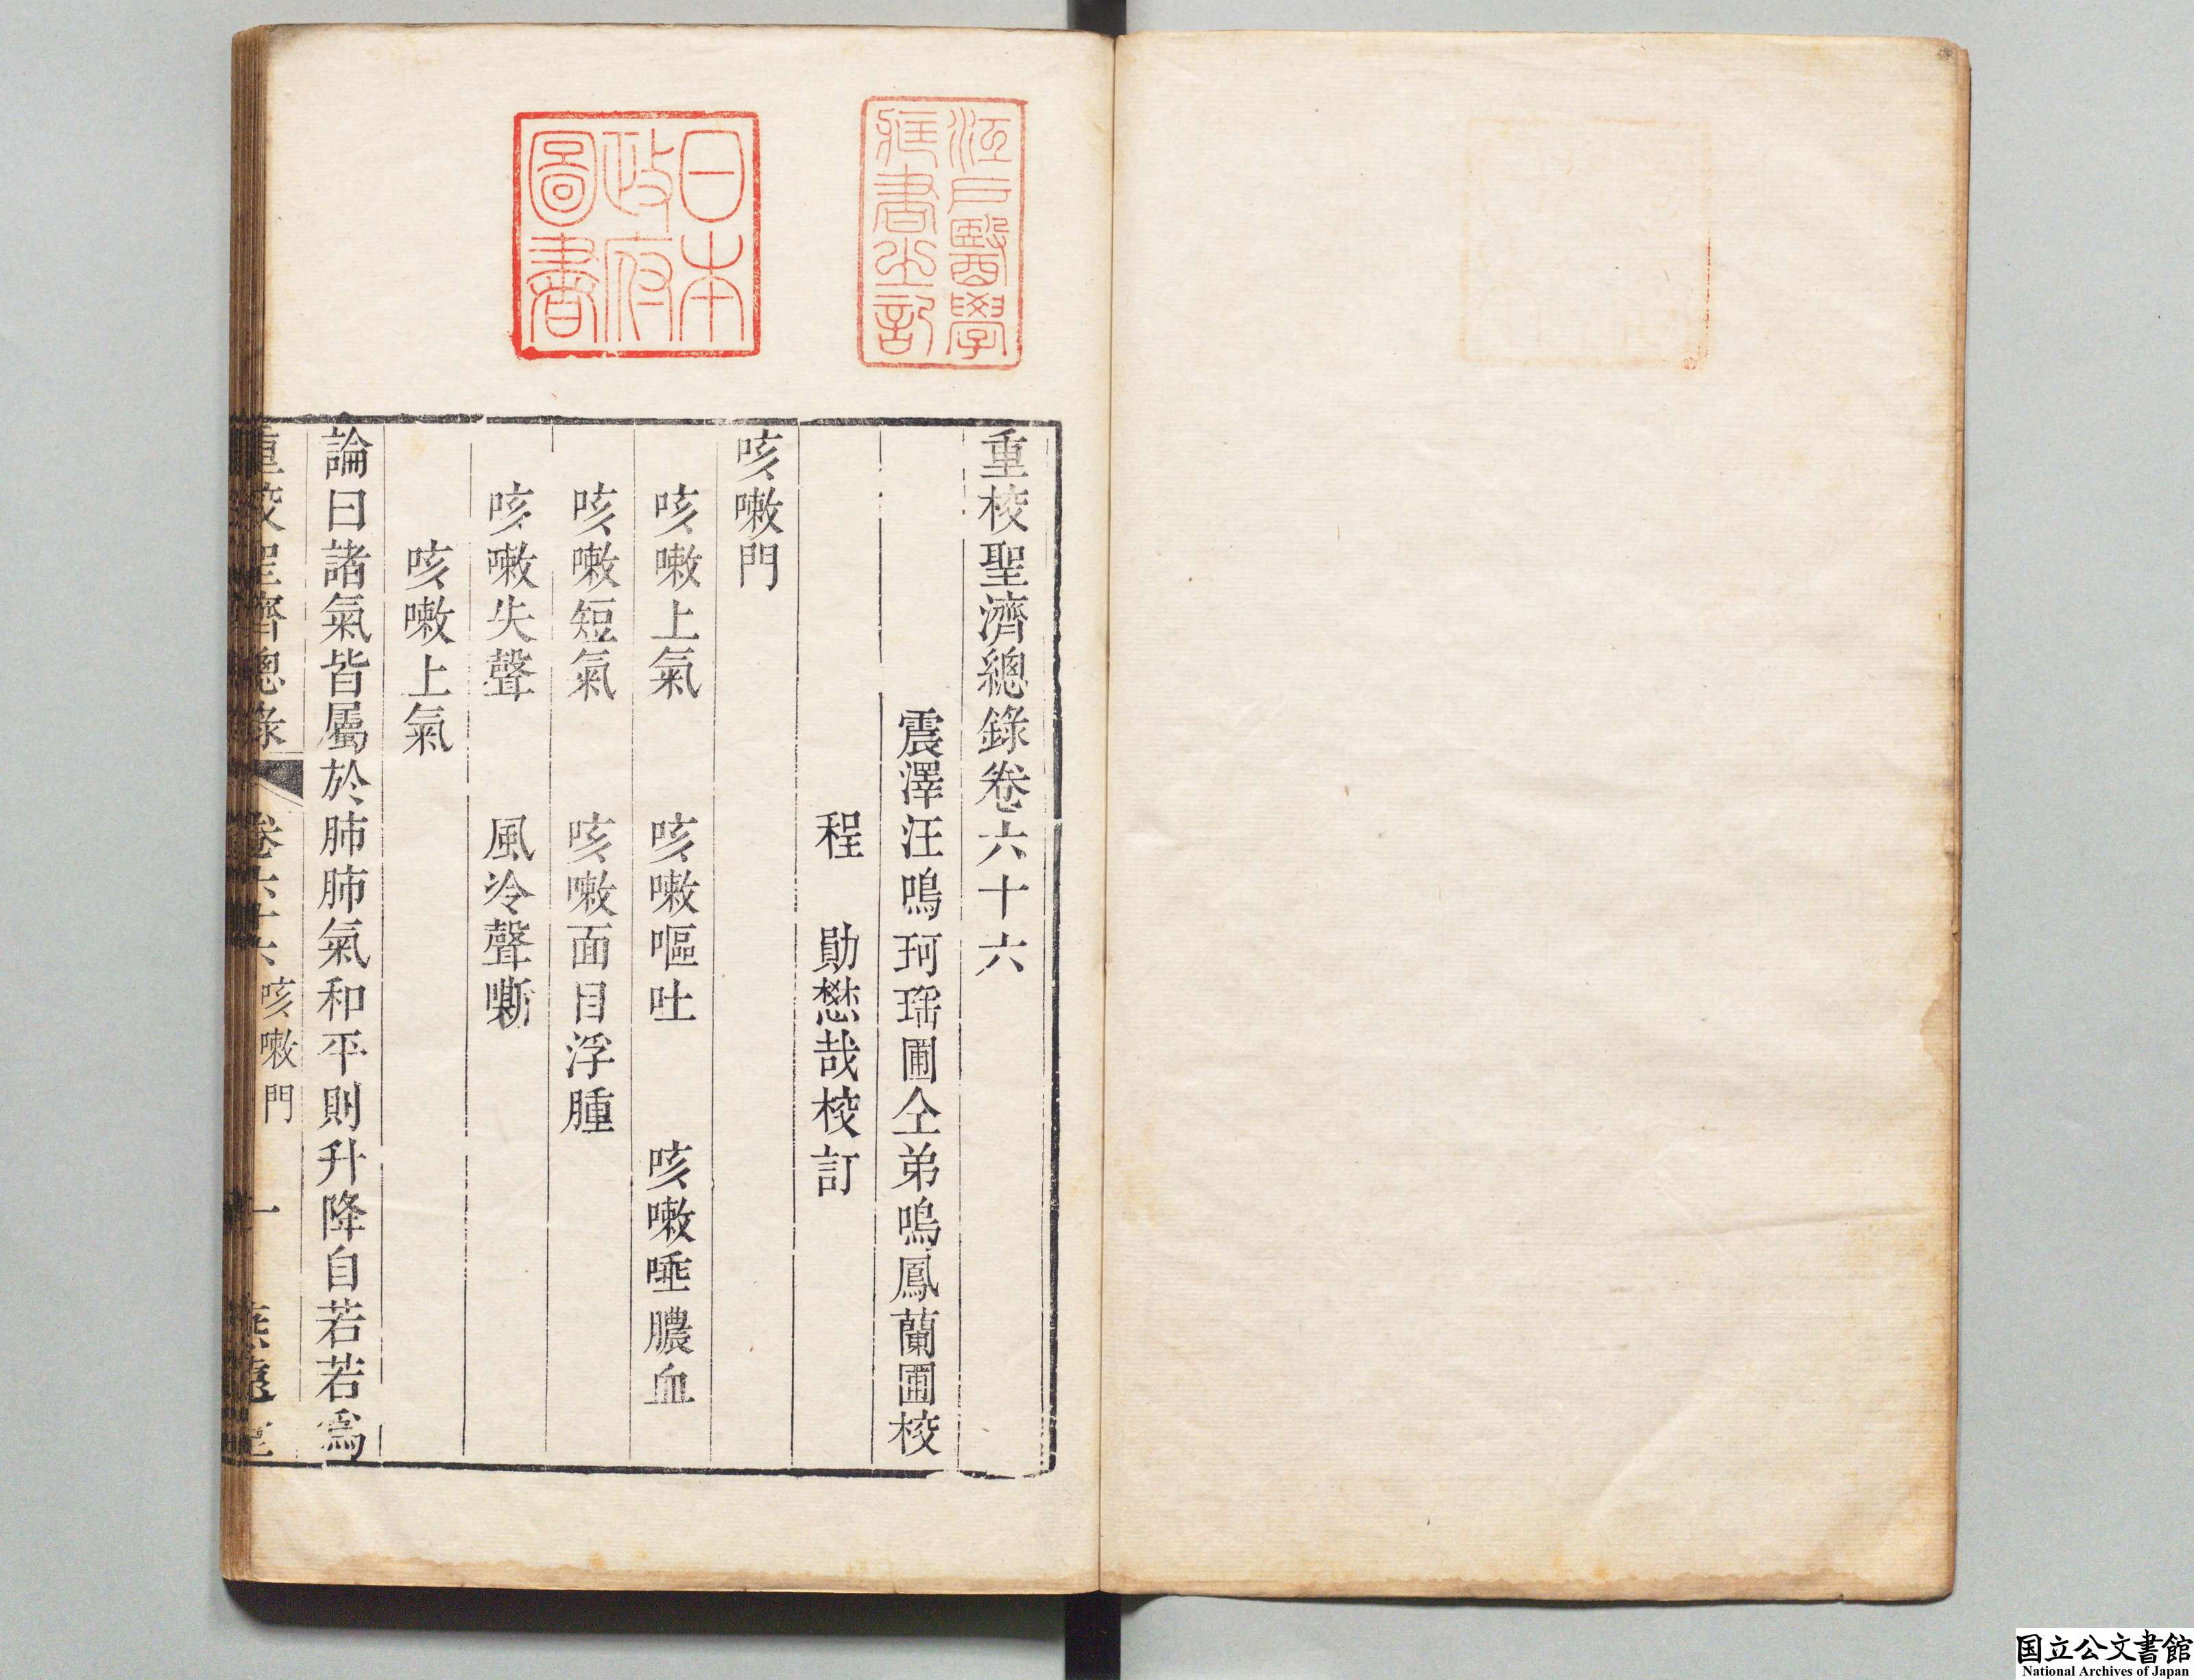 江戶醫學
藏書之記
日本
政府
圖書
重校聖濟總錄卷六十六
震澤汪鳴珂瑶圃仝弟鳴鳳蘭圃校
程 勛懋哉校訂
咳嗽門
咳嗽上氣 咳嗽嘔吐 咳嗽唾膿血
咳嗽短氣 咳嗽面目浮腫
咳嗽失聲 風冷聲嘶
咳嗽上氣
論曰諸氣皆屬於肺肺氣和平則升降自若若爲
重校聖濟總錄 卷六十六 咳嗽門 一
国立公文書館
National Archives of Japan